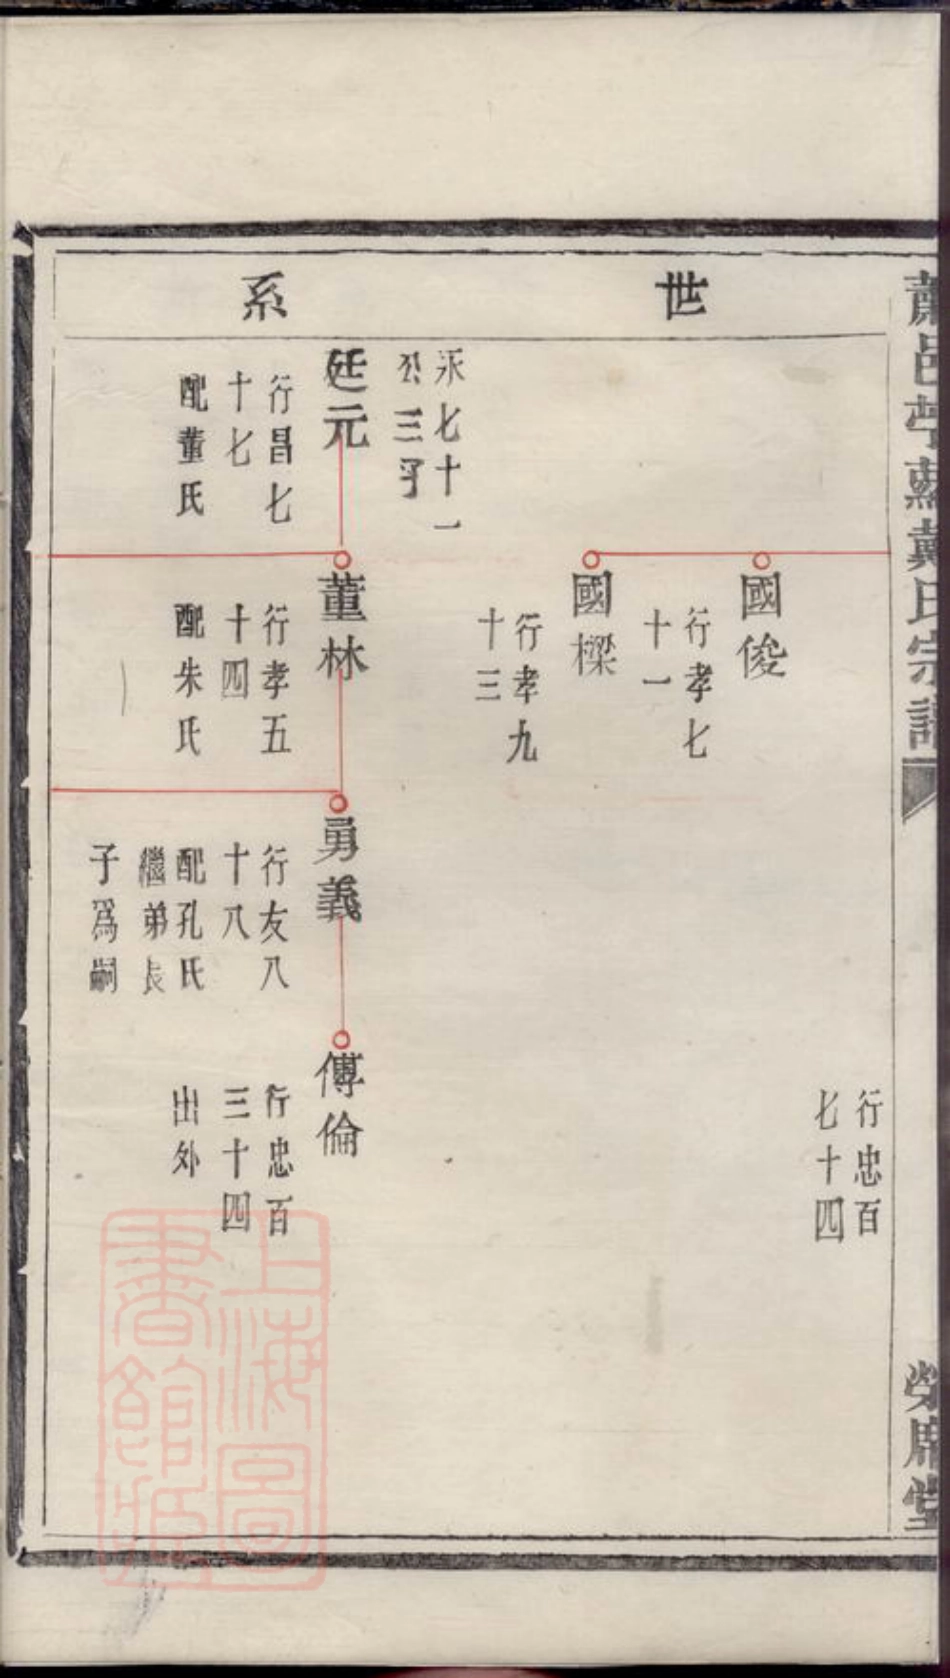 世系
行忠百
七十四
國俊
行孝七
十一
國樑
行孝九
十三
永七十一
公三子
廷元
行昌七
十七
配董氏
董林
行孝五
十四
配朱氏
勇義
行友八
十八
配孔氏
繼弟長
子爲嗣
傳倫
行忠百
三十四
出外
戴氏宗譜
榮席堂
上海圖
書館藏